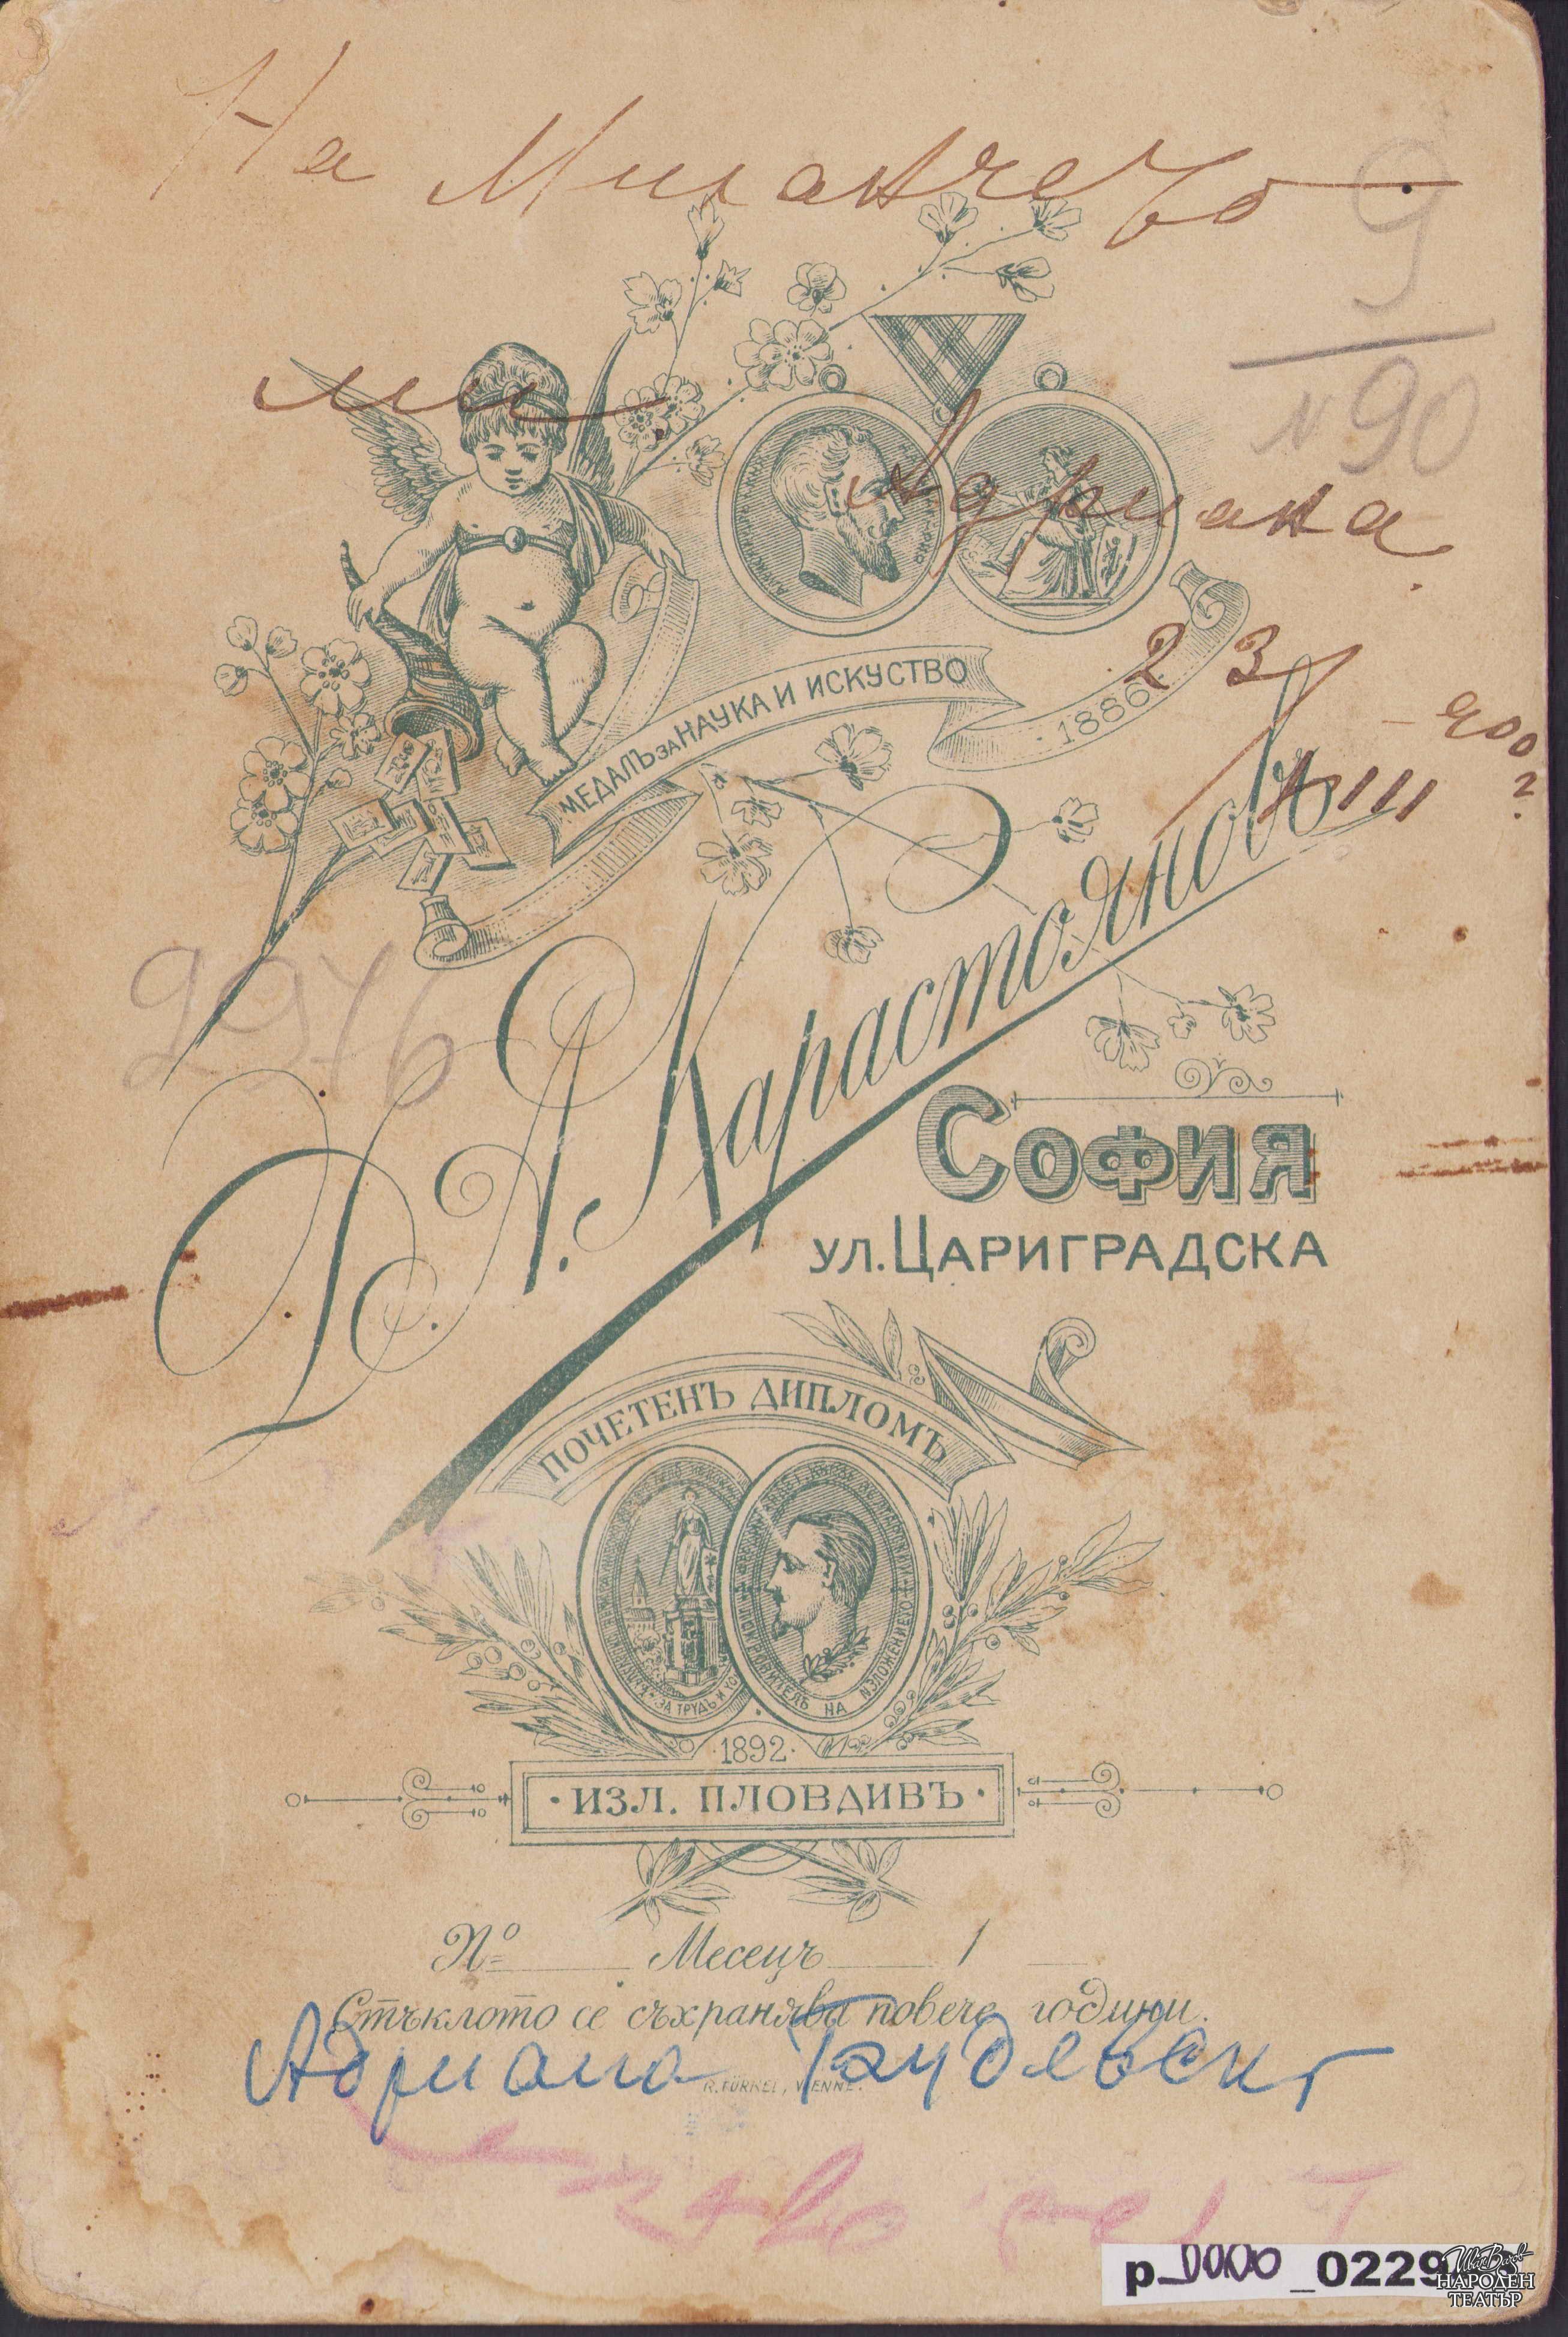 На Миланчето
9
ми
N 90
Адриана
23/VIII 900 г.
МЕДАЛЪ ЗА НАУКА И ИСКУСТВО
1886
Д. А. Карастояновъ
2976
СОФИЯ
УЛ. ЦАРИГРАДСКА
ПОЧЕТЕНЪ ДИПЛОМЪ
ЗА ТРУДЪ И
НА ИЗЛОЖЕНИЕТО
1892
· ИЗЛ. ПЛОВДИВЪ ·
№ Месецъ 1
Стъклото се съхранява повече години.
Адриана Будевски
R. TÜRKEL, VIENNE.
p_0000_0229
НАРОДЕН
ТЕАТЪР